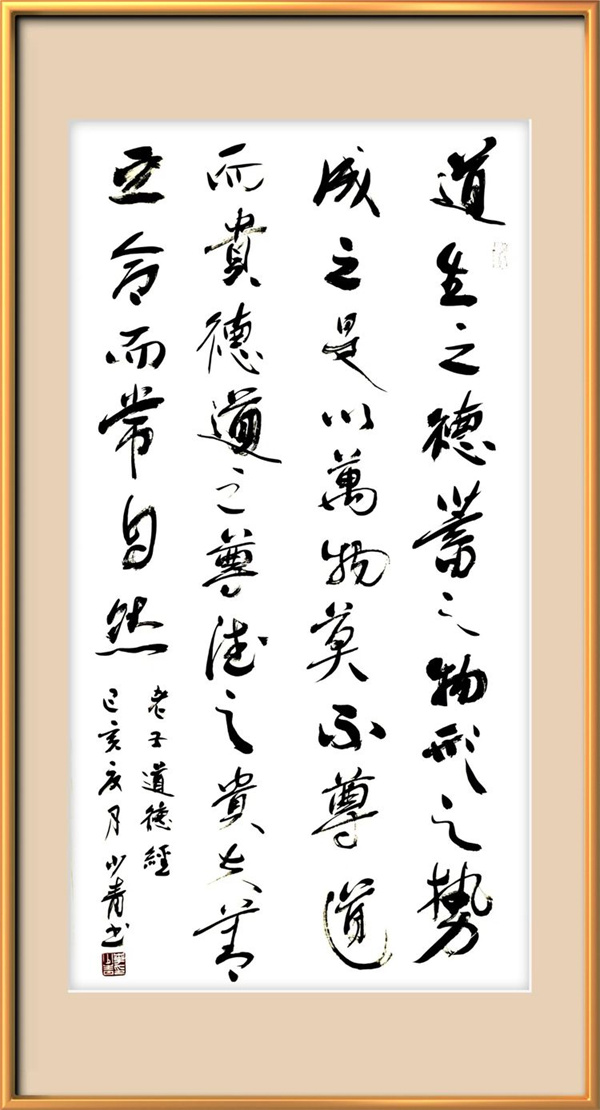 道生之德蓄之物形之勢
成之是以萬物莫不尊道
而貴德道之尊德之貴夫莫
之命而常自然
老子道德經
己亥夏月少青书